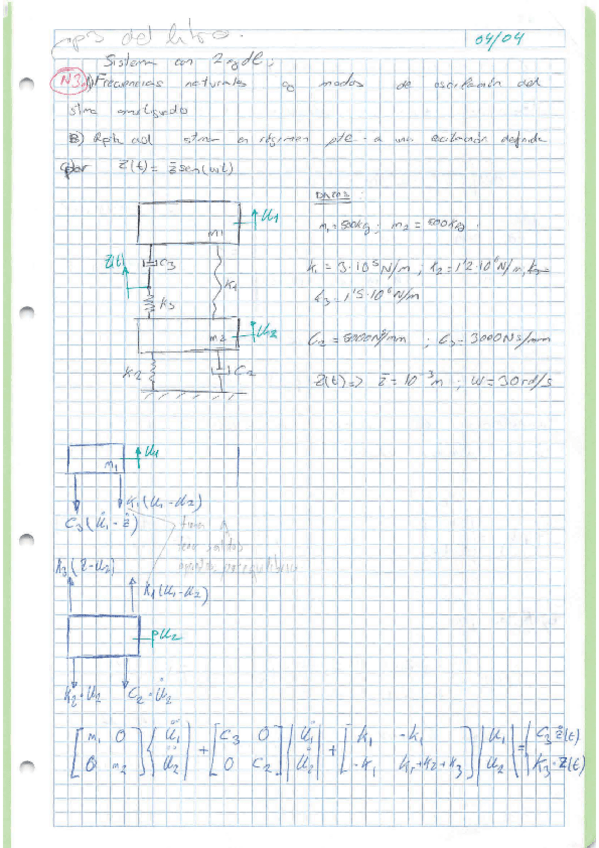 del libro.
04/04
Sistema con 2 gdl:
N3 1) Frecuencias naturales y modos de oscilación del
stma amortiguado
B) Rpta del stma en régimen pte a una excitación definida
por Z(t) = z̄ sen(ωt)
DATOS:
m₁ = 500kg ; m₂ = 600kg
k₁ = 3·10⁵ N/m ; k₂ = 1'2·10⁶ N/m,
k₃ = 1'5·10⁶ N/m
C₂ = 5000 Ns/mm ; C₃ = 3000 Ns/mm
Z(t) => z̄ = 10⁻³ m ; ω = 30 rd/s
m₁
u₁
Z(t)
C₃
k₁
k₃
m₂
u₂
k₂
C₂
m₁
u₁
k₁(u₁-u₂)
C₃(u̇₁-ż)
k₃(z-u₂)
k₁(u₁-u₂)
u₂
k₂·u₂
C₂·u̇₂
[m₁ 0; 0 m₂]{ü₁; ü₂} + [C₃ 0; 0 C₂]{u̇₁; u̇₂} + [k₁ -k₁; -k₁ k₁+k₂+k₃]{u₁; u₂} = {C₃ ż(t); k₃·z(t)}